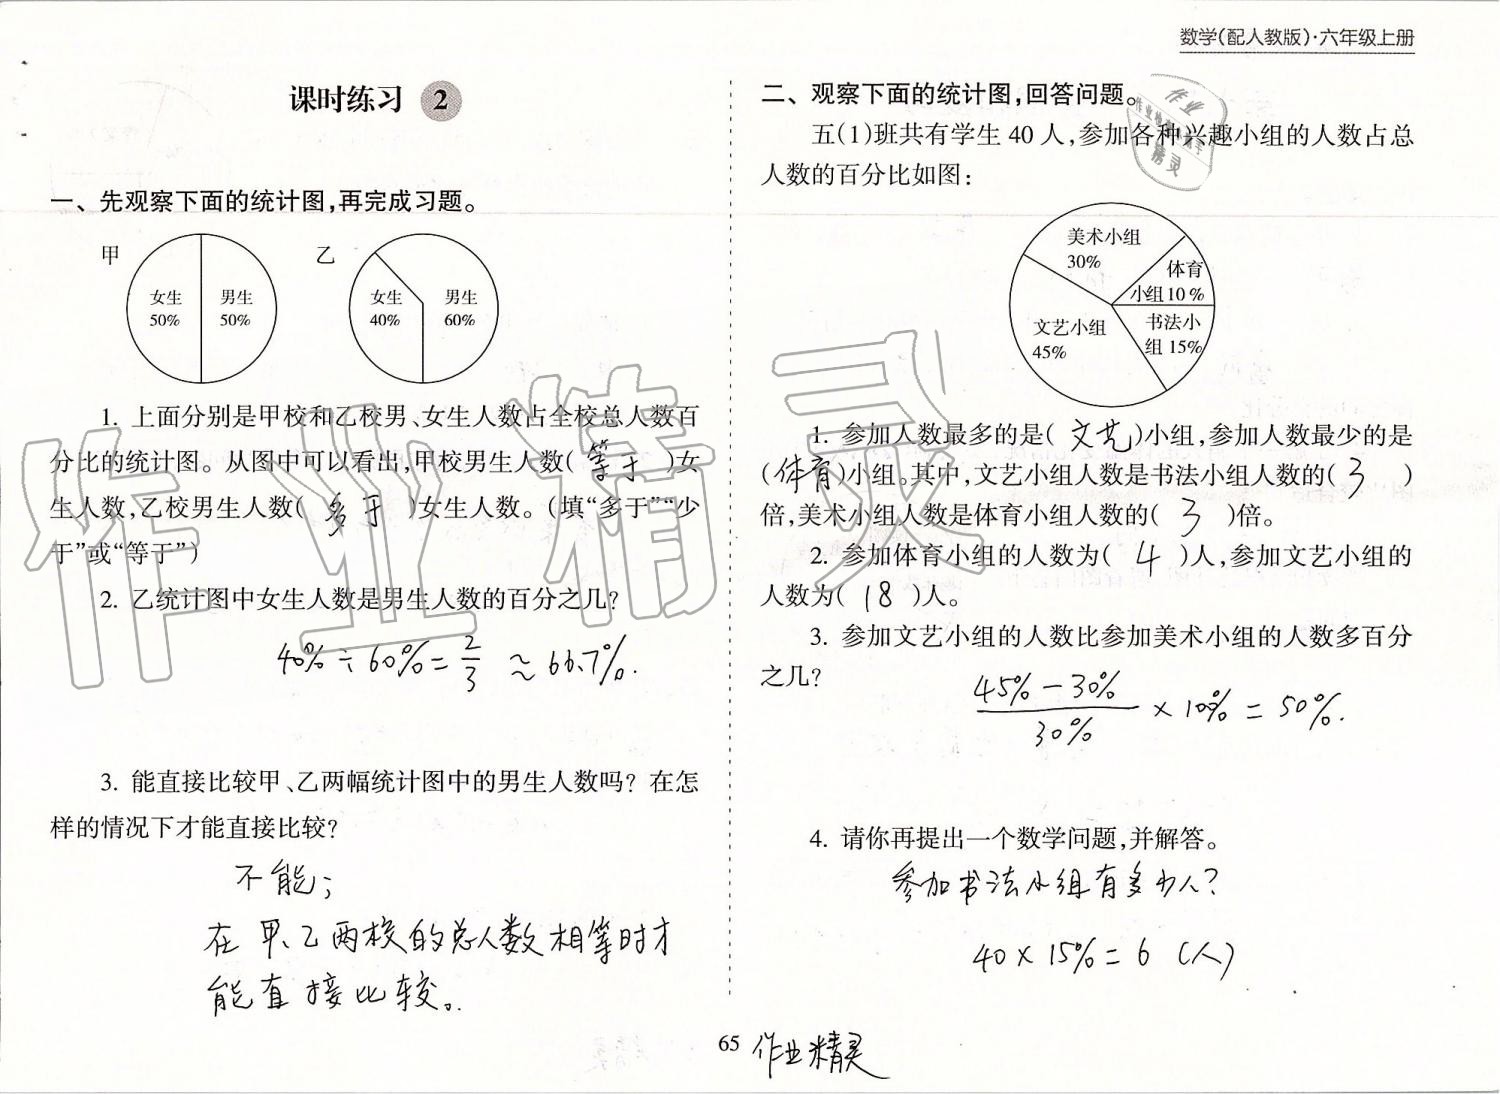 数学(配人教版)·六年级上册
课时练习 2
一、先观察下面的统计图,再完成习题。
甲
女生
50%
男生
50%
乙
女生
40%
男生
60%
1. 上面分别是甲校和乙校男、女生人数占全校总人数百
分比的统计图。从图中可以看出,甲校男生人数( 等于 )女
生人数,乙校男生人数( 多于 )女生人数。(填“多于”“少
于”或“等于”)
2. 乙统计图中女生人数是男生人数的百分之几?
40%÷60%=2/3≈66.7%.
3. 能直接比较甲、乙两幅统计图中的男生人数吗? 在怎
样的情况下才能直接比较?
不能;
在甲、乙两校的总人数相等时才
能直接比较。
二、观察下面的统计图,回答问题。
五(1)班共有学生 40 人,参加各种兴趣小组的人数占总
人数的百分比如图:
美术小组
30%
体育
小组10%
文艺小组
45%
书法小
组15%
1. 参加人数最多的是( 文艺 )小组,参加人数最少的是
( 体育 )小组。其中,文艺小组人数是书法小组人数的( 3 )
倍,美术小组人数是体育小组人数的( 3 )倍。
2. 参加体育小组的人数为( 4 )人,参加文艺小组的
人数为( 18 )人。
3. 参加文艺小组的人数比参加美术小组的人数多百分
之几?
45%-30%
30%
×100%=50%.
4. 请你再提出一个数学问题,并解答。
参加书法小组有多少人?
40×15%=6(人)
65
作业精灵
作业精灵
作业
精灵